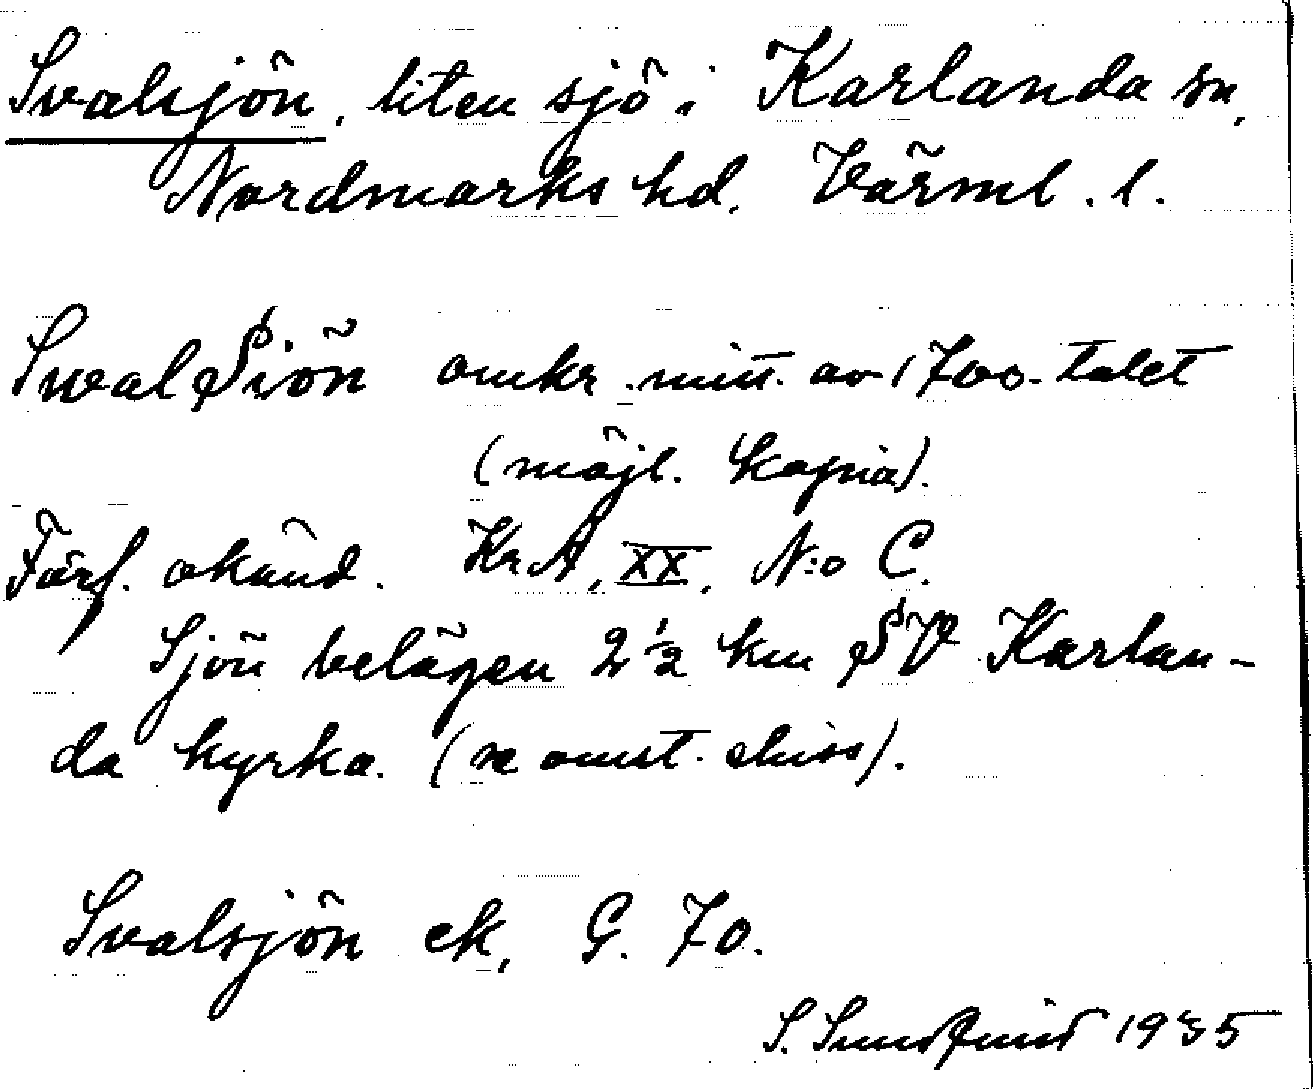 Svalsjön, liten sjö i Karlanda sn,
Nordmarks hd. Värml. l.
Swal Siön omkr. mitt. av 1700-talet
(möjl. kopia).
Förf. okänd. KrA, XX, N:o C.
Sjön belägen 2 1/2 km SV Karlan-
da kyrka. (se omst. skiss).
Svalsjön ek. G. 70.
S. Sundquist 1935